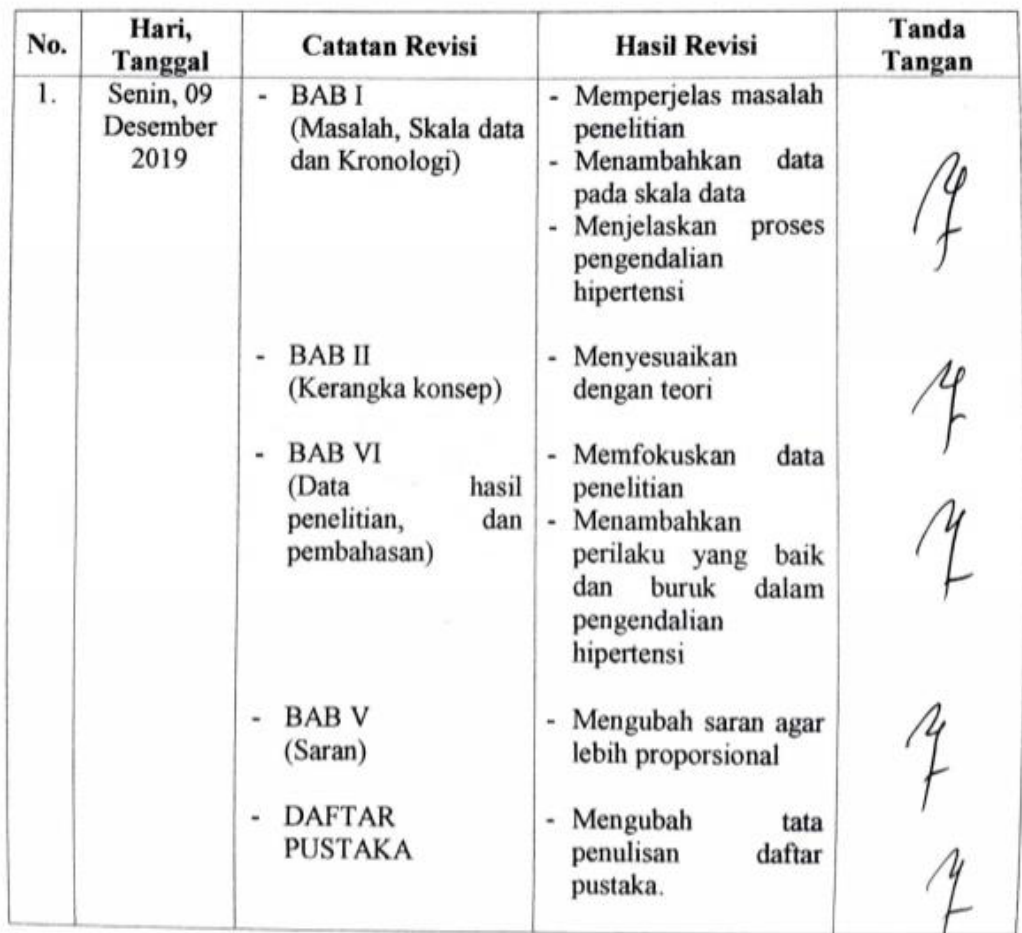 No.
Hari,
Tanggal
Catatan Revisi
Hasil Revisi
Tanda
Tangan
1.
Senin, 09
Desember
2019
- BAB I
(Masalah, Skala data
dan Kronologi)
- Memperjelas masalah
penelitian
- Menambahkan data
pada skala data
- Menjelaskan proses
pengendalian
hipertensi
- BAB II
(Kerangka konsep)
- Menyesuaikan
dengan teori
- BAB VI
(Data hasil
penelitian, dan
pembahasan)
- Memfokuskan data
penelitian
- Menambahkan
perilaku yang baik
dan buruk dalam
pengendalian
hipertensi
- BAB V
(Saran)
- Mengubah saran agar
lebih proporsional
- DAFTAR
PUSTAKA
- Mengubah tata
penulisan daftar
pustaka.